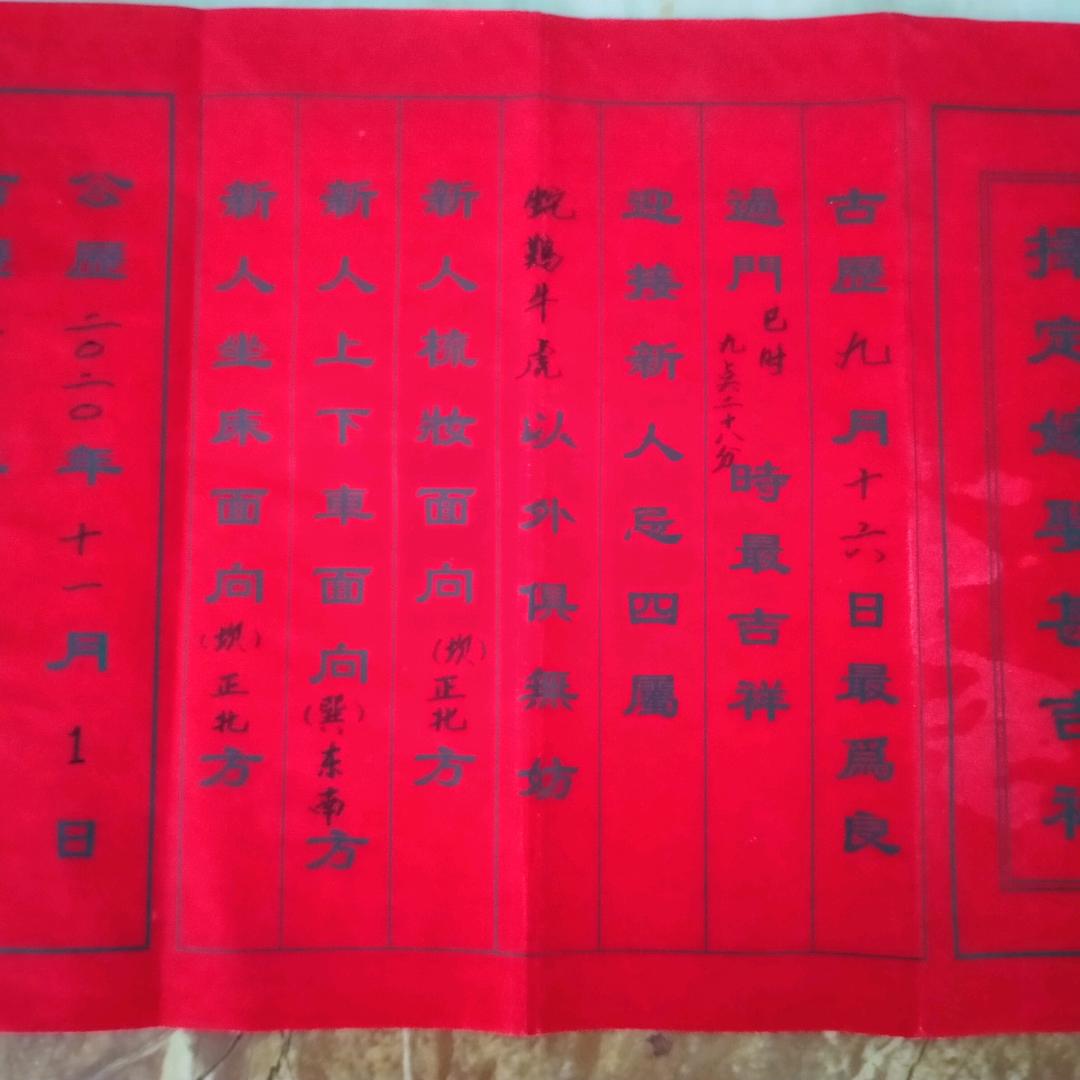 擇定嫁娶甚吉祥
古歷九月十六日最爲良
過門巳时九点二十八分時最吉祥
迎接新人忌四屬
蛇鷄牛虎以外俱無妨
新人梳妝面向(坎)正北方
新人上下車面向(巽)东南方
新人坐床面向(坎)正北方
公歷二〇二〇年十一月1日